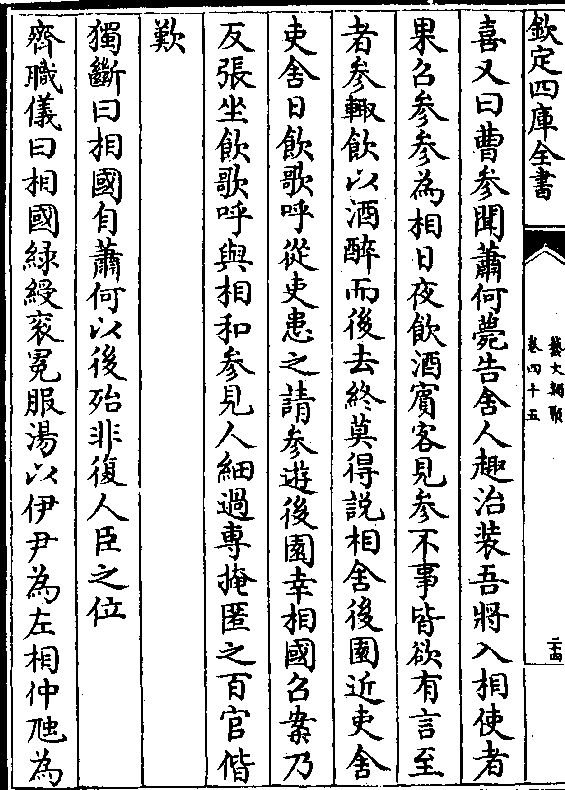 欽定四庫全書
藝文類聚
卷四十五
二十四
喜又曰曹參聞蕭何薨告舍人趣治装吾將入相使者
果召參參為相日夜飲酒賓客見參不事皆欲有言至
者參輙飲以酒醉而後去終莫得説相舍後園近吏舍
吏舍日飲歌呼從吏患之請參遊後園幸相國召案乃
反張坐飲歌呼與相和參見人細過專掩匿之百官偕
歎
獨斷曰相國自蕭何以後殆非復人臣之位
齊職儀曰相國緑綬衮冕服湯以伊尹為左相仲虺為